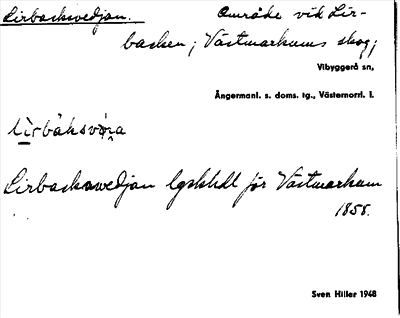 Lirbackswedjan. Område vid Lir-
backen; Västmarkums skog;
Vibyggerå sn,
Ångermanl. s. doms. tg., Västernorrl. l.
Lirbackawedjan lgsktkt för Västmarkum
1858.
Sven Hiller 1948